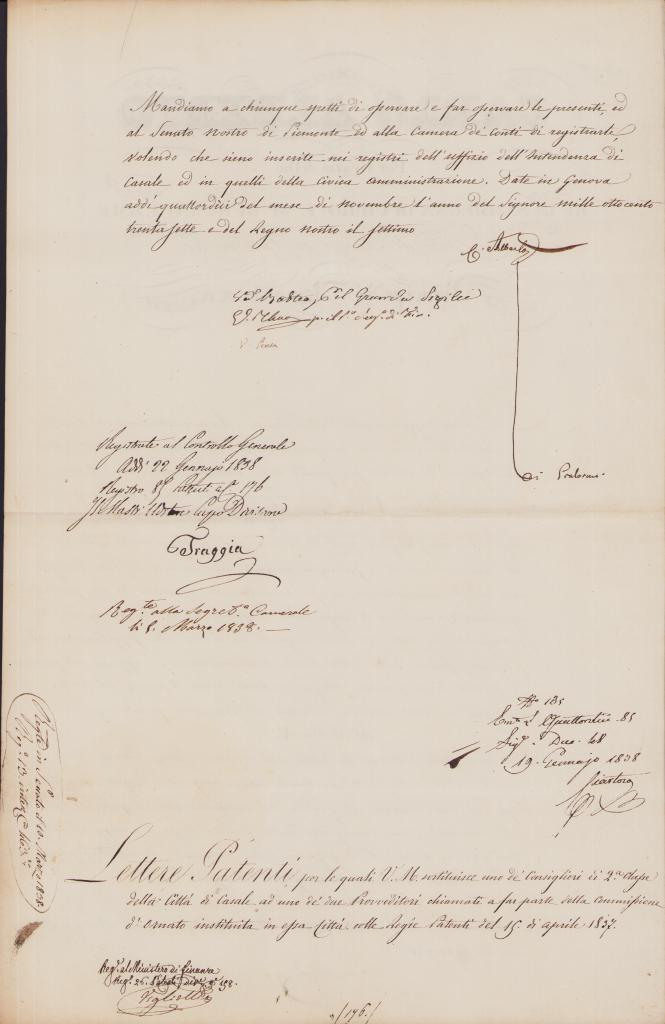 Mandiamo a chiunque spetti di osservare e far osservare le presenti, ed
al Senato nostro di Piemonte ed alla Camera de' conti di registrarle
volendo che sieno inserite nei registri dell'uffizio dell'Intendenza di
Casale ed in quelli della civica amministrazione. Date in Genova
addì quattordici del mese di novembre l'anno del Signore mille ottocento
trentasette e del Regno nostro il settimo
C. Alberto
di Pralormo
Registrate al Controllo Generale
Addì 22 Gennajo 1838
Registro 85 Patenti a C. 176
Capo Divisione
Traggia
Reg.te alla Segret.a Camerale
li 8. Marzo 1838.
N.o 135
Em.ti £ Quattordici 85
Sig.o Due 48
19. Gennajo 1838
Reg.te in Senato il 10. Marzo 1838
Lettere Patenti per le quali V. M. sostituisce uno de' Consiglieri di 2.a Classe
della Città di Casale ad uno de' due Provveditori chiamati a far parte della Commissione
d'ornato instituita in essa Città colle Regie Patenti del 15. di aprile 1837.
Reg.te al Ministero di Finanze
Reg.o 26. Patenti 198.
(196.)